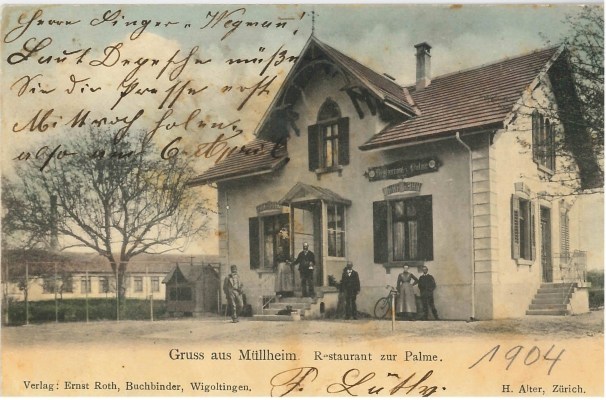 Herrn Singer - Wegman!
Laut Depesche müßen
Sie die Presse erst
Mittwoch holen,
also am
Restaurant z. Palme
Gruss aus Müllheim Restaurant zur Palme.
1904
Verlag: Ernst Roth, Buchbinder, Wigoltingen.
F. Lüthy.
H. Alter, Zürich.